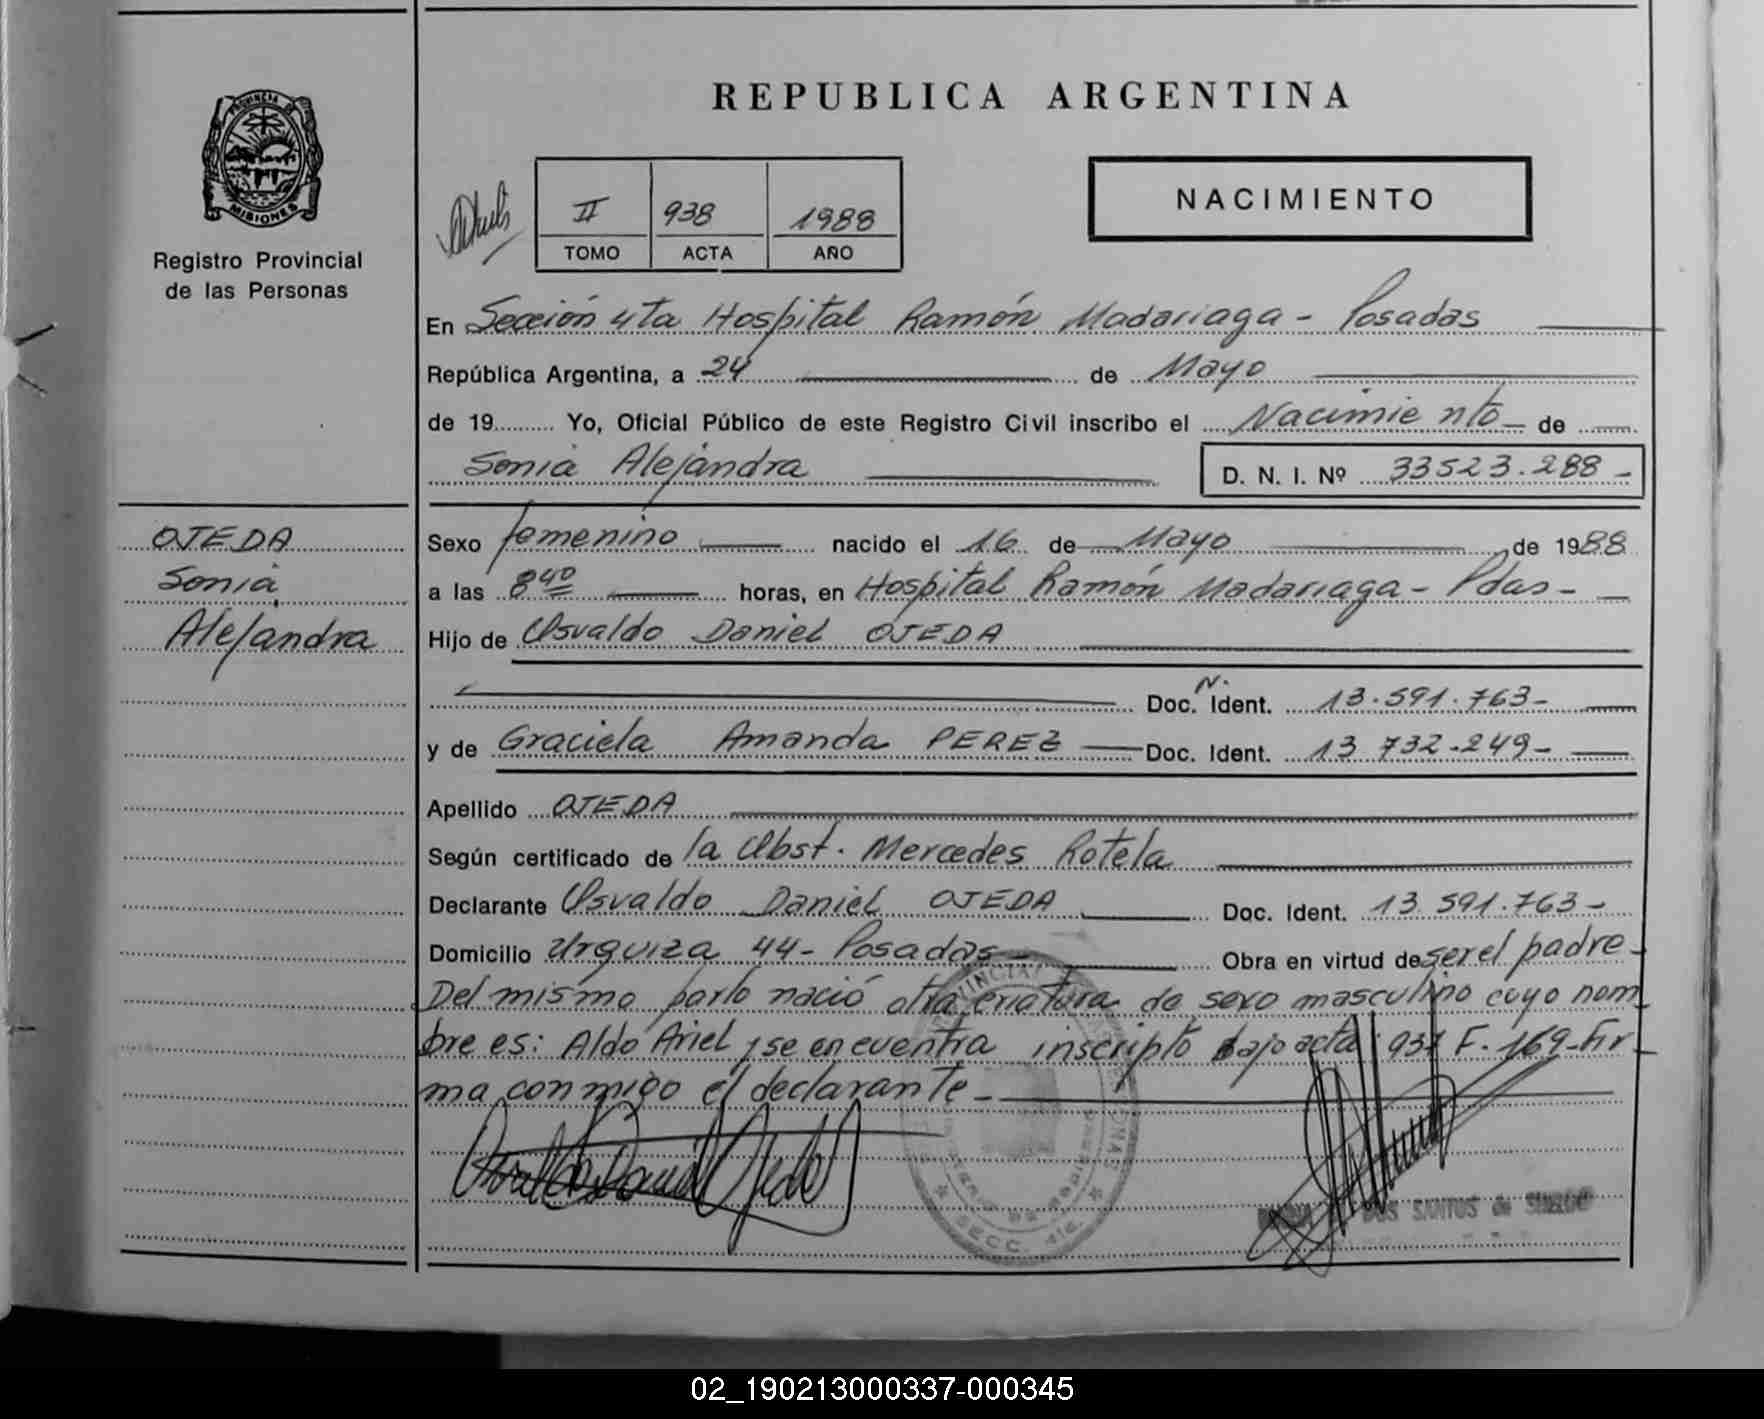 REPUBLICA ARGENTINA
PROVINCIA DE
MISIONES
Registro Provincial
de las Personas
II 938 1988
TOMO ACTA AÑO
NACIMIENTO
En Sección 4ta Hospital Ramón Madariaga - Posadas
República Argentina, a 24 de Mayo
de 19 Yo, Oficial Público de este Registro Civil inscribo el Nacimiento de
Sonia Alejandra D. N. I. Nº 33523.288 -
OJEDA
Sonia
Alejandra
Sexo femenino nacido el 16 de Mayo de 1988
a las 8 40 horas, en Hospital Ramón Madariaga - Pdas -
Hijo de Osvaldo Daniel OJEDA
Doc. N. Ident. 13.591.763 -
y de Graciela Amanda PEREZ Doc. Ident. 13 732.249 -
Apellido OJEDA
Según certificado de la Obst. Mercedes Rotela
Declarante Osvaldo Daniel OJEDA Doc. Ident. 13 591.763 -
Domicilio Urquiza 44 - Posadas - Obra en virtud de ser el padre -
Del mismo parto nació otra criatura de sexo masculino cuyo nom
bre es: Aldo Ariel y se encuentra inscripto bajo acta 937 F. 169 - Fir
ma conmigo el declarante -
Osvaldo Daniel Ojeda
SECC. 4ta.
DOS SANTOS de
02_190213000337-000345